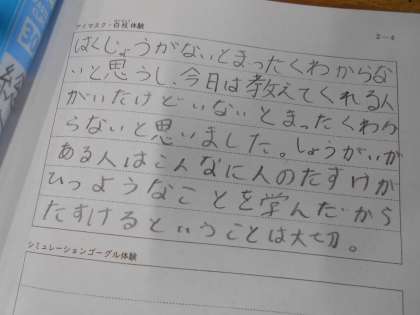 アイマスク・白杖体験
2－4
はくじょうがないとまったくわからな
いと思うし、今日は教えてくれる人
がいたけどいないとまったくわか
らないと思いました。しょうがいが
ある人はこんなに人のたすけが
ひつようなことを学んだから
たすけるということは大切。
シミュレーションゴーグル体験